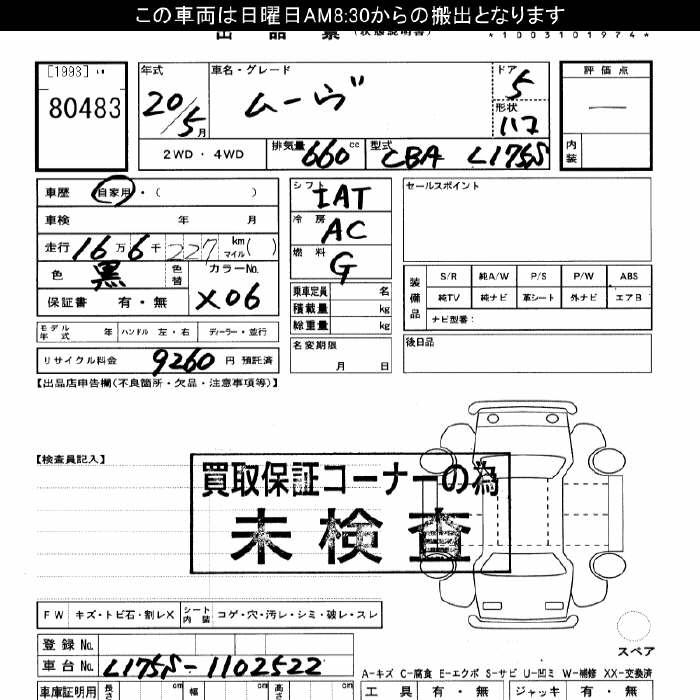 この車両は日曜日AM8:30からの搬出となります
出品票(状態説明書)
*1003101974*
[1993]
80483
年式 20/5月
車名・グレード ムーヴ
ドア 5
形状
評価点 —
内装
2WD・4WD
排気量 660cc
型式 CBA L175S
車歴 自家用・( )
車検 年 月
走行 16万6千227km マイル( )
色 黒 色替
カラーNo. X06
保証書 有・無
シフト IAT
冷房 AC
燃料 G
乗車定員 名
積載量 kg
総重量 kg
セールスポイント
装備品
S/R 純A/W P/S P/W ABS
純TV 純ナビ 革シート 外ナビ エアB
ナビ型番:
モデル年式 年 ハンドル 左・右 ディーラー・並行
名変期限 月 日
後日品
リサイクル料金 9260円 預託済
【出品店申告欄(不良箇所・欠品・注意事項等)】
【検査員記入】
買取保証コーナーの為
未検査
FW キズ・トビ石・割レX シート内装 コゲ・穴・汚レ・シミ・破レ・スレ
スペア
登録No.
車台No. L175S-1102522
A-キズ C-腐食 E-エクボ S-サビ U-凹ミ W-補修 XX-交換済
車庫証明用 長さ cm 幅 cm 高さ cm
工具 有・無 ジャッキ 有・無